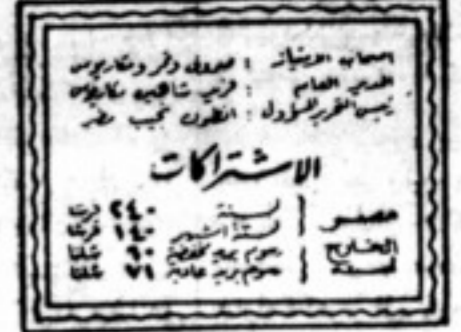 أصحاب الامتياز : صروف ونمر ومكاريوس
المدير العام : فريد شاهين مكاريوس
رئيس التحرير المسؤول : انطون نجيب مطر
الاشتراكات
مصر { لسنة ٢٤٠ قرشا
لستة اشهر ١٤٠ قرشا
الخارج لسنة { رسوم بريد مخفضة ٦٠ شلنا
رسوم بريد عادية ٧١ شلنا